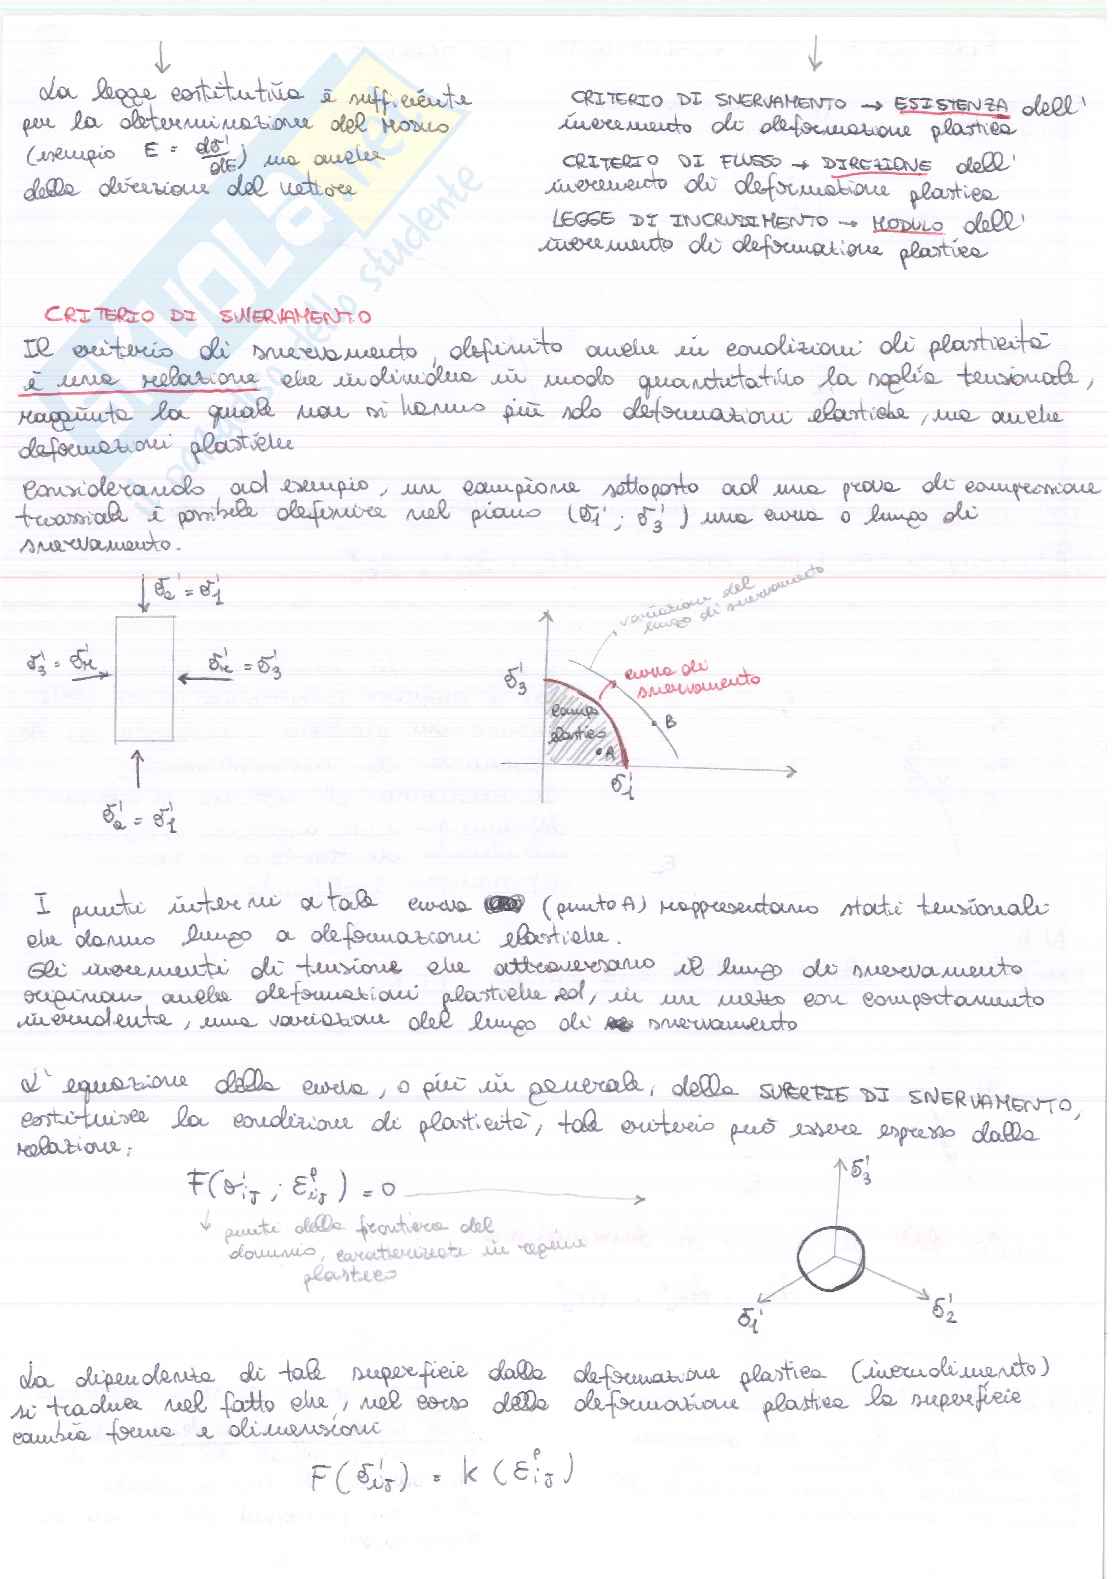 La legge costitutiva è sufficiente
per la determinazione del modulo
(esempio E = dσ'/dE) ma anche
della direzione del vettore
CRITERIO DI SNERVAMENTO → ESISTENZA dell'
incremento di deformazione plastica
CRITERIO DI FLUSSO → DIREZIONE dell'
incremento di deformazione plastica
LEGGE DI INCRUDIMENTO → MODULO dell'
incremento di deformazione plastica
CRITERIO DI SNERVAMENTO
Il criterio di snervamento, definito anche in condizioni di plasticità
è una relazione che individua in modo quantitativo la soglia tensionale,
raggiunta la quale non si hanno più solo deformazioni elastiche, ma anche
deformazioni plastiche
Considerando, ad esempio, un campione sottoposto ad una prova di compressione
triassiale è possibile definire nel piano (σ1'; σ3') una curva o luogo di
snervamento.
σa' = σ1'
σ3' = σr'
σr' = σ3'
σa' = σ1'
variazione del
luogo di snervamento
σ3'
curva di
snervamento
campo
elastico
A
B
σ1'
I punti interni a tale curva (punto A) rappresentano stati tensionali
che danno luogo a deformazioni elastiche.
Gli incrementi di tensione che attraversano il luogo di snervamento
originano anche deformazioni plastiche ed, in un mezzo con comportamento
incrudente, una variazione del luogo di snervamento
L'equazione della curva, o più in generale, della SUPERFIE DI SNERVAMENTO,
costituisce la condizione di plasticità, tale criterio può essere espresso dalla
relazione:
F(σ'ij ; εᵖij) = 0
↓ punti della frontiera del
dominio, caratterizzati in regime
plastico
σ3'
σ1'
σ2'
La dipendenza di tale superficie dalla deformazione plastica (incrudimento)
si traduce nel fatto che, nel corso della deformazione plastica la superficie
cambia forma e dimensioni
F(σ'ij) = k (εᵖij)
SKUOLA.net
il paradiso dello studente